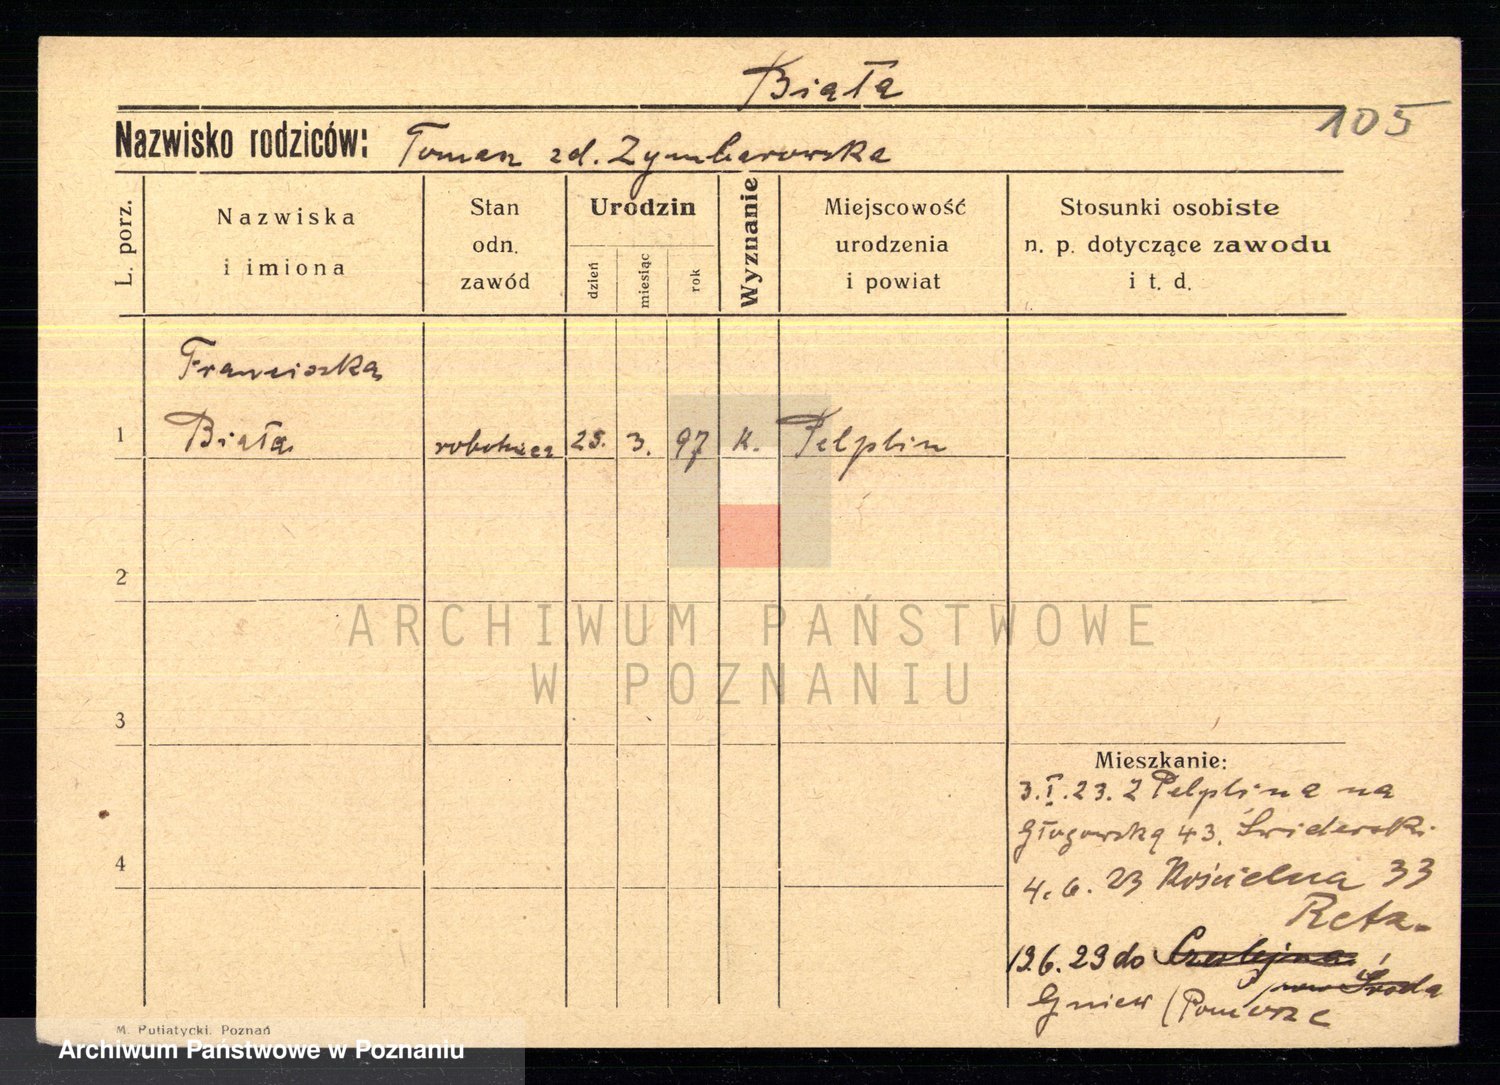 Biała
105
Nazwisko rodziców: Toman zd. Zymbarowska
L. porz.
Nazwiska
i imiona
Stan
odn.
zawód
Urodzin
dzień
miesiąc
rok
Wyznanie
Miejscowość
urodzenia
i powiat
Stosunki osobiste
n. p. dotyczące zawodu
i t. d.
Franciszka
1 Biała robotnica 25. 3. 97 K. Pelplin
2
ARCHIWUM PAŃSTWOWE
W POZNANIU
3
Mieszkanie:
3.I.23. Z Pelplina na
Głogowską 43. Świderski.
4
4.6.23 Kościelna 33
Reta.
19.6.29 do
Środa
Gniew (Pomorze
M. Putiatycki. Poznań
Archiwum Państwowe w Poznaniu